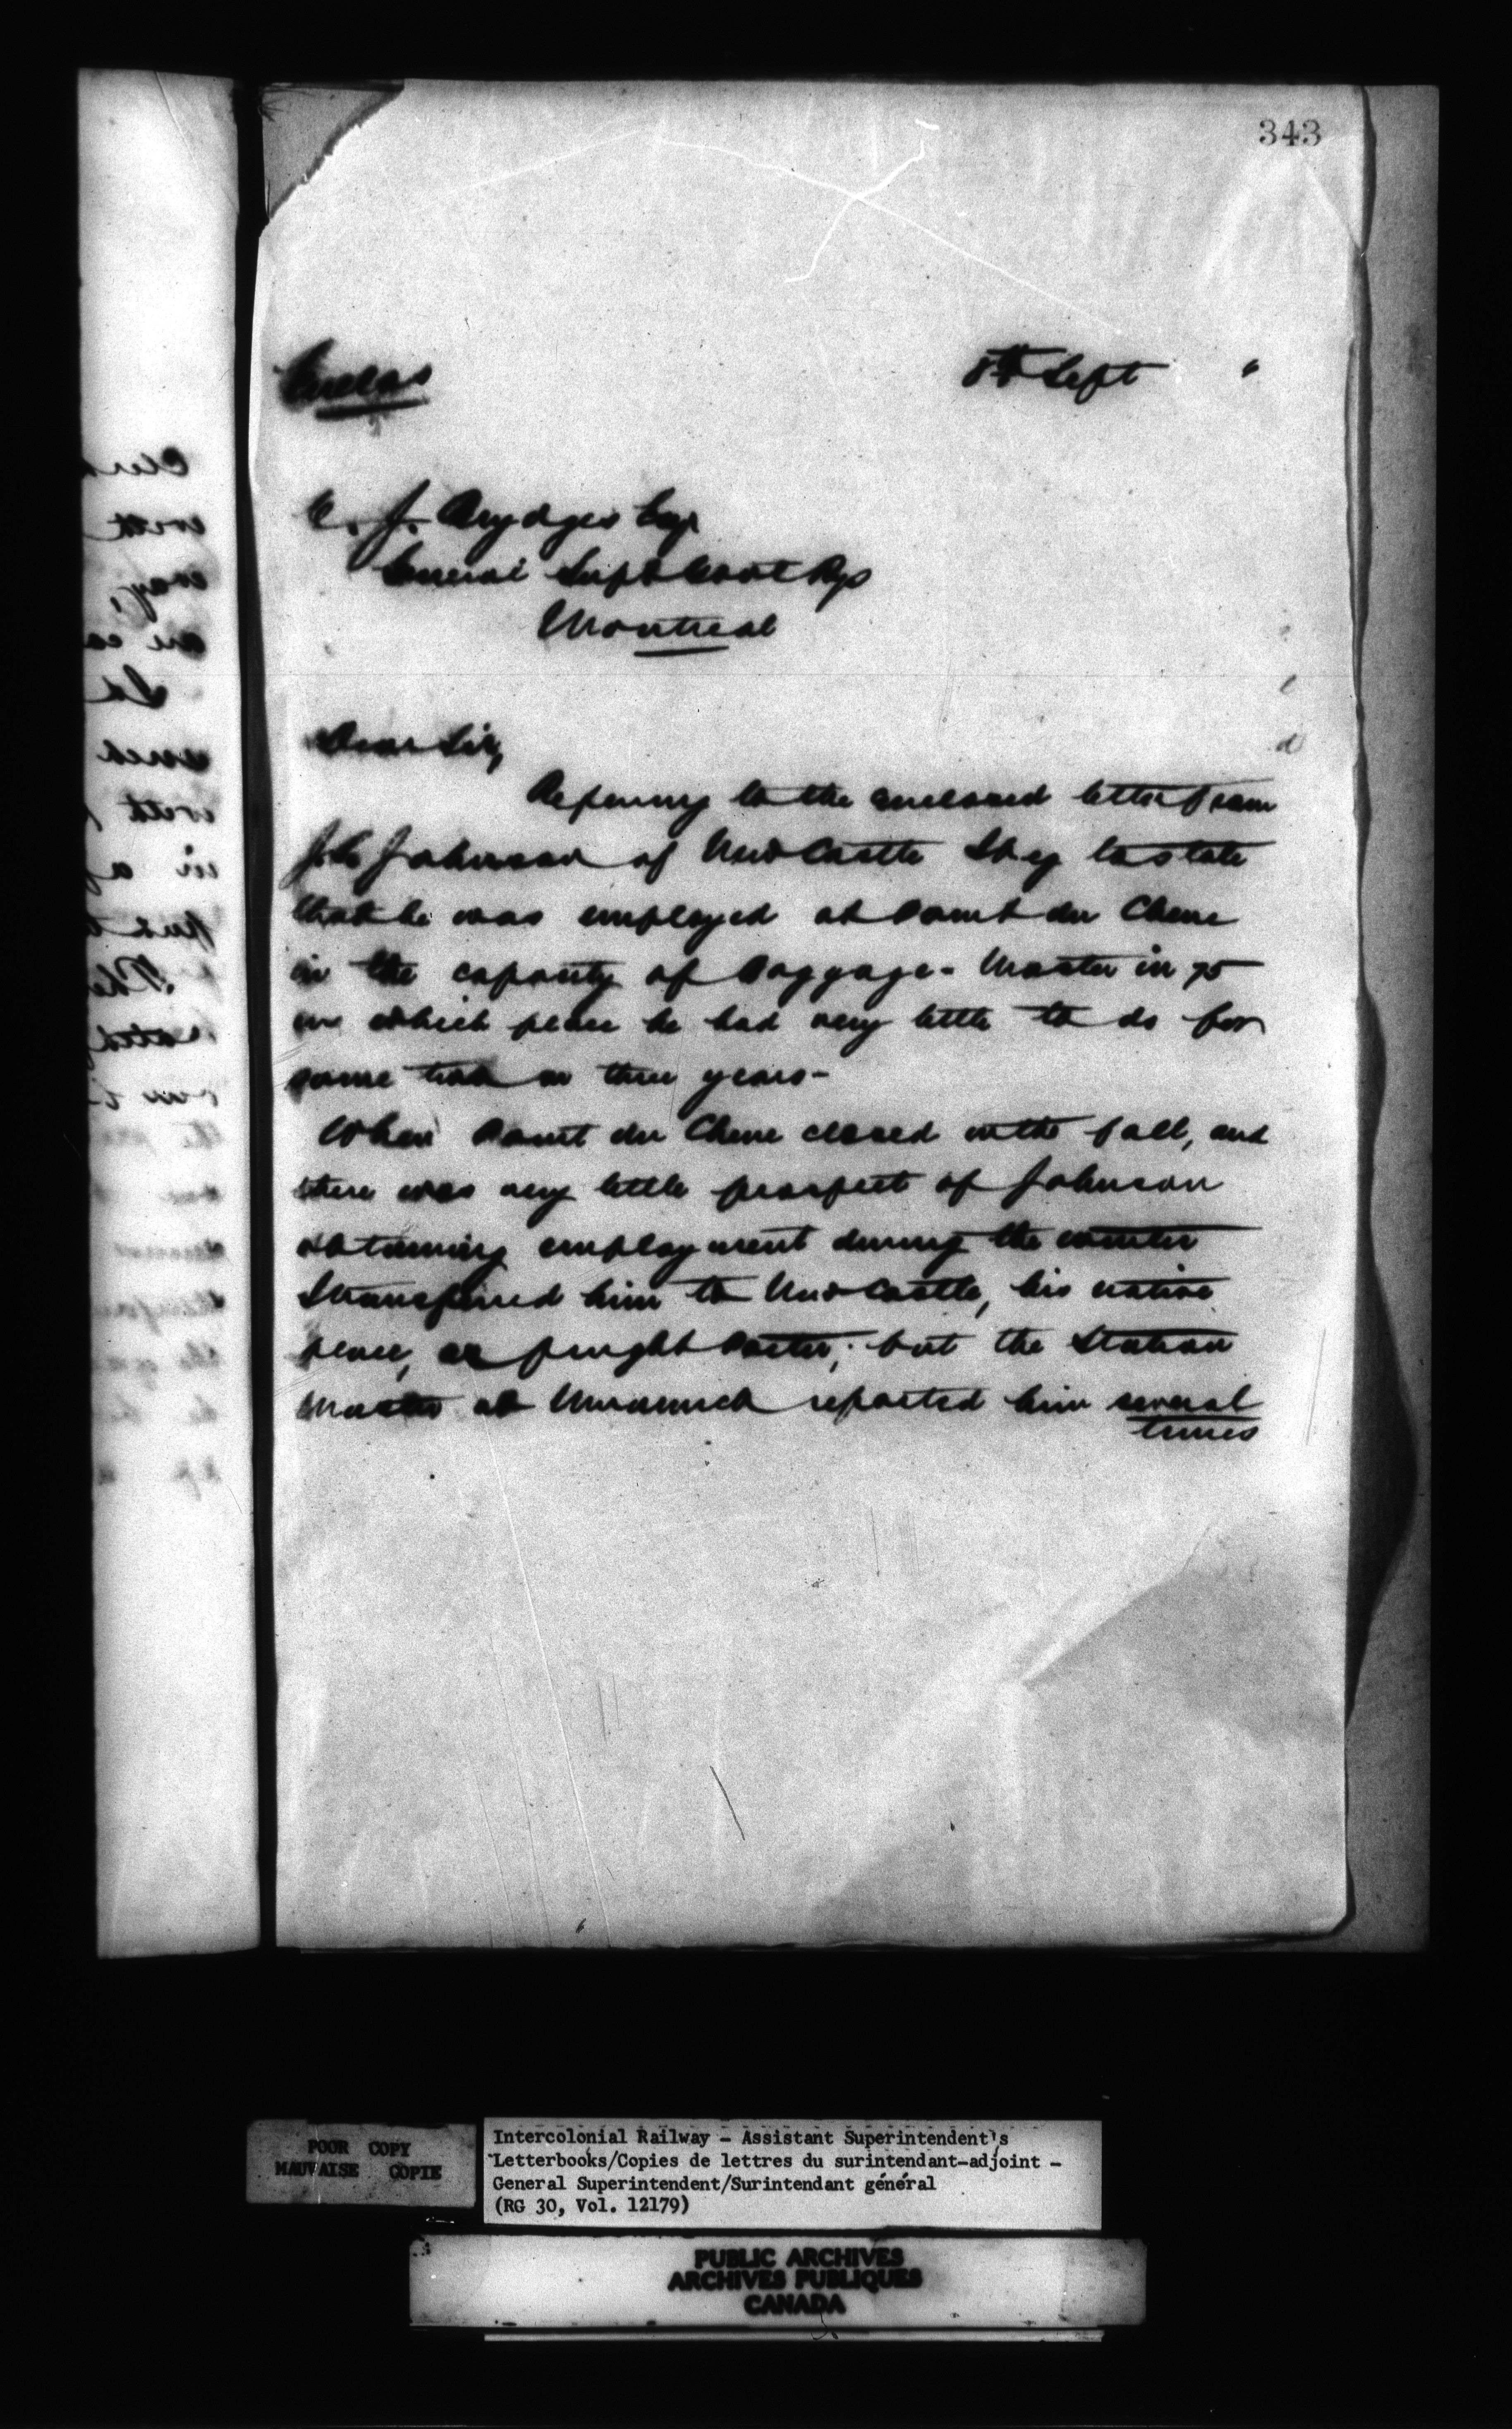 343
Enclos
8th Sept "
C. J. Brydges Esq
General Supt Govt Rys
Montreal
Dear Sir,
Referring to the enclosed letter from
J. C. Johnson of New Castle I beg to state
that he was employed at Point du Chene
in the capacity of Baggage-Master in 75
in which place he had very little to do for
some two or three years-
When Point du Chene closed in the fall, and
there was very little prospect of Johnson
obtaining employment during the winter
I transferred him to New Castle, his native
place, as freight Porter; but the Station
Master at reported him several
times
POOR COPY
MAUVAISE COPIE
Intercolonial Railway - Assistant Superintendent's
Letterbooks/Copies de lettres du surintendant-adjoint -
General Superintendent/Surintendant général
(RG 30, Vol. 12179)
PUBLIC ARCHIVES
ARCHIVES PUBLIQUES
CANADA